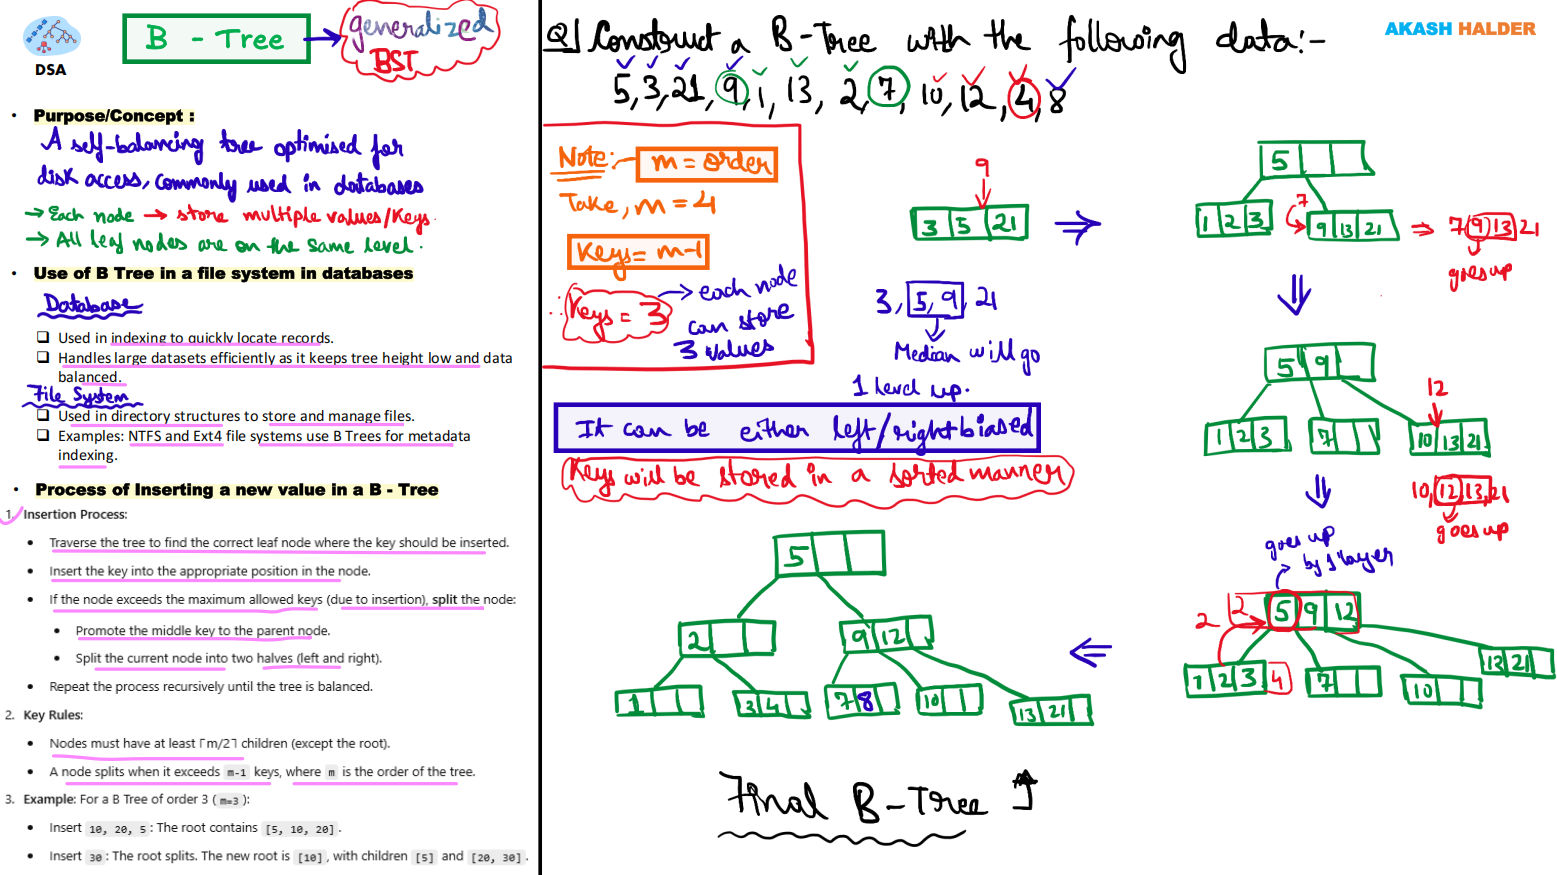 DSA
B - Tree
generalized
BST
• Purpose/Concept :
A self-balancing tree optimised for
disk access, commonly used in databases
→ Each node → store multiple values/keys.
→ All leaf nodes are on the same level.
• Use of B Tree in a file system in databases
Database
❑ Used in indexing to quickly locate records.
❑ Handles large datasets efficiently as it keeps tree height low and data
balanced.
File System
❑ Used in directory structures to store and manage files.
❑ Examples: NTFS and Ext4 file systems use B Trees for metadata
indexing.
• Process of Inserting a new value in a B - Tree
1. Insertion Process:
• Traverse the tree to find the correct leaf node where the key should be inserted.
• Insert the key into the appropriate position in the node.
• If the node exceeds the maximum allowed keys (due to insertion), split the node:
• Promote the middle key to the parent node.
• Split the current node into two halves (left and right).
• Repeat the process recursively until the tree is balanced.
2. Key Rules:
• Nodes must have at least ⌈m/2⌉ children (except the root).
• A node splits when it exceeds m-1 keys, where m is the order of the tree.
3. Example: For a B Tree of order 3 ( m=3 ):
• Insert 10, 20, 5 : The root contains [5, 10, 20] .
• Insert 30 : The root splits. The new root is [10] , with children [5] and [20, 30] .
AKASH HALDER
Q) Construct a B-Tree with the following data:-
5, 3, 21, 9, 1, 13, 2, 7, 10, 12, 4, 8
Note:- m = order
Take, m = 4
Keys = m-1
∴ Keys = 3 → each node
can store
3 values
9
3 5 21
3, 5, 9, 21
Median will go
1 level up.
It can be either left/right biased
Keys will be stored in a sorted manner
5
1 2 3
7
9 13 21
⇒ 7 9 13 21
goes up
5 9
12
1 2 3
7
10 13 21
10, 12, 13, 21
goes up
goes up
by 1 layer
2
2 5 9 12
1 2 3 4
7
10
13 21
5
2
9 12
1
3 4
7 8
10
13 21
Final B-Tree